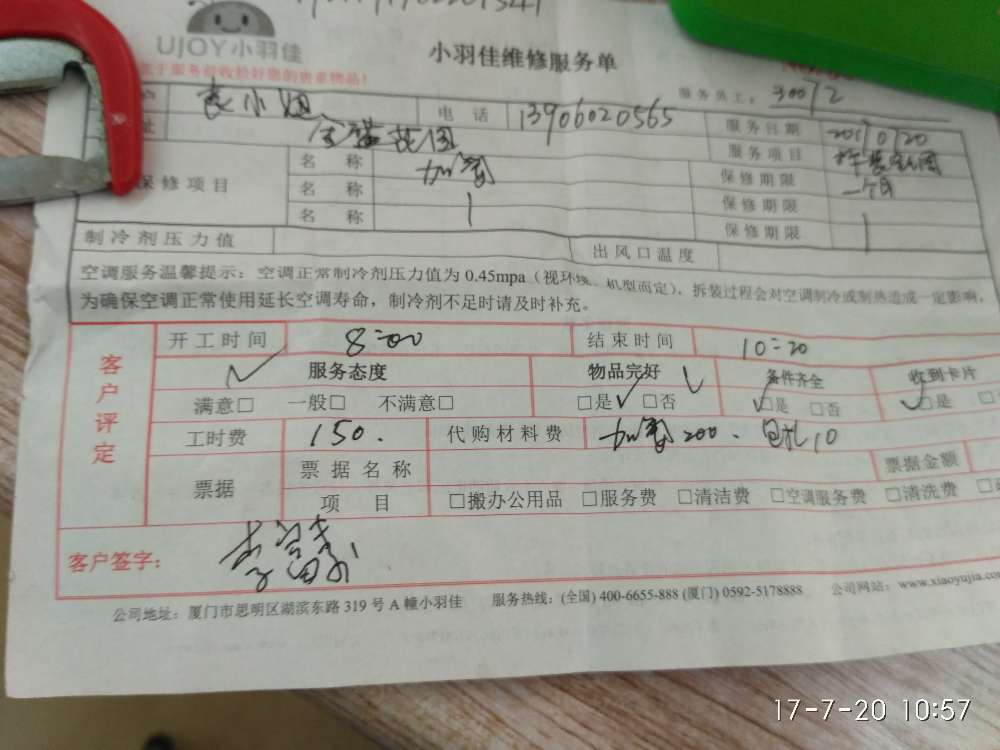 UJOY小羽佳
小羽佳维修服务单
于服务前收捡好您的贵重物品!
服务员工: 30072
袁小姐 电话 13906020565 服务日期
服务项目
保修项目 名称 加氟 保修期限 一个月
名称 保修期限
名称 保修期限
制冷剂压力值 出风口温度
空调服务温馨提示: 空调正常制冷剂压力值为 0.45mpa (视环境、机型而定), 拆装过程会对空调制冷或制热造成一定影响。
为确保空调正常使用延长空调寿命, 制冷剂不足时请及时补充。
客户评定
开工时间 8:00 结束时间 10:20
服务态度 物品完好 备件齐全 收到卡片
满意□ 一般□ 不满意□ □是 □否 □是 □否 □是
工时费 150. 代购材料费 加氟200、包扎10
票据 票据名称 票据金额
项目 □搬办公用品 □服务费 □清洁费 □空调服务费 □清洗费
客户签字:
公司地址: 厦门市思明区湖滨东路 319 号 A 幢小羽佳 服务热线: (全国) 400-6655-888 (厦门) 0592-5178888 公司网站: www.xiaoyujia.co
17-7-20 10:57